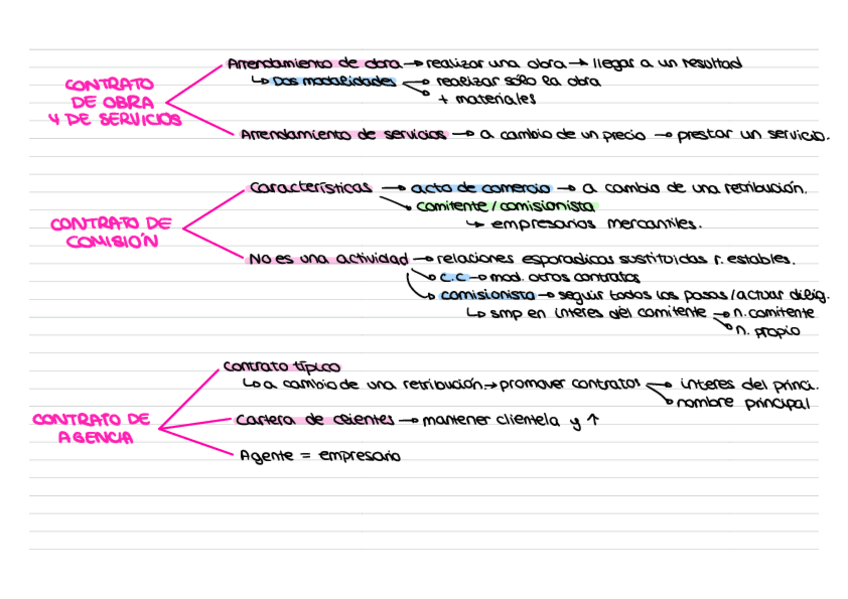 CONTRATO
DE OBRA
Y DE SERVICIOS
Arrendamiento de obra → realizar una obra → llegar a un resultad
↳ Dos modalidades → realizar sólo la obra
+ materiales
Arrendamiento de servicios → a cambio de un precio → prestar un servicio.
CONTRATO DE
COMISIÓN
Características → acto de comercio → a cambio de una retribución.
comitente / comisionista
↳ empresarios mercantiles.
No es una actividad → relaciones esporadicas sustituidas r. estables.
c.c → mod. otros contratos
comisionista → seguir todos los pasos / actuar dilig.
↳ smp en interes del comitente → n. comitente
n. propio
CONTRATO DE
AGENCIA
Contrato típico
↳ a cambio de una retribución. → promover contratos → interes del princi.
nombre principal
Cartera de clientes → mantener clientela y ↑
Agente = empresario